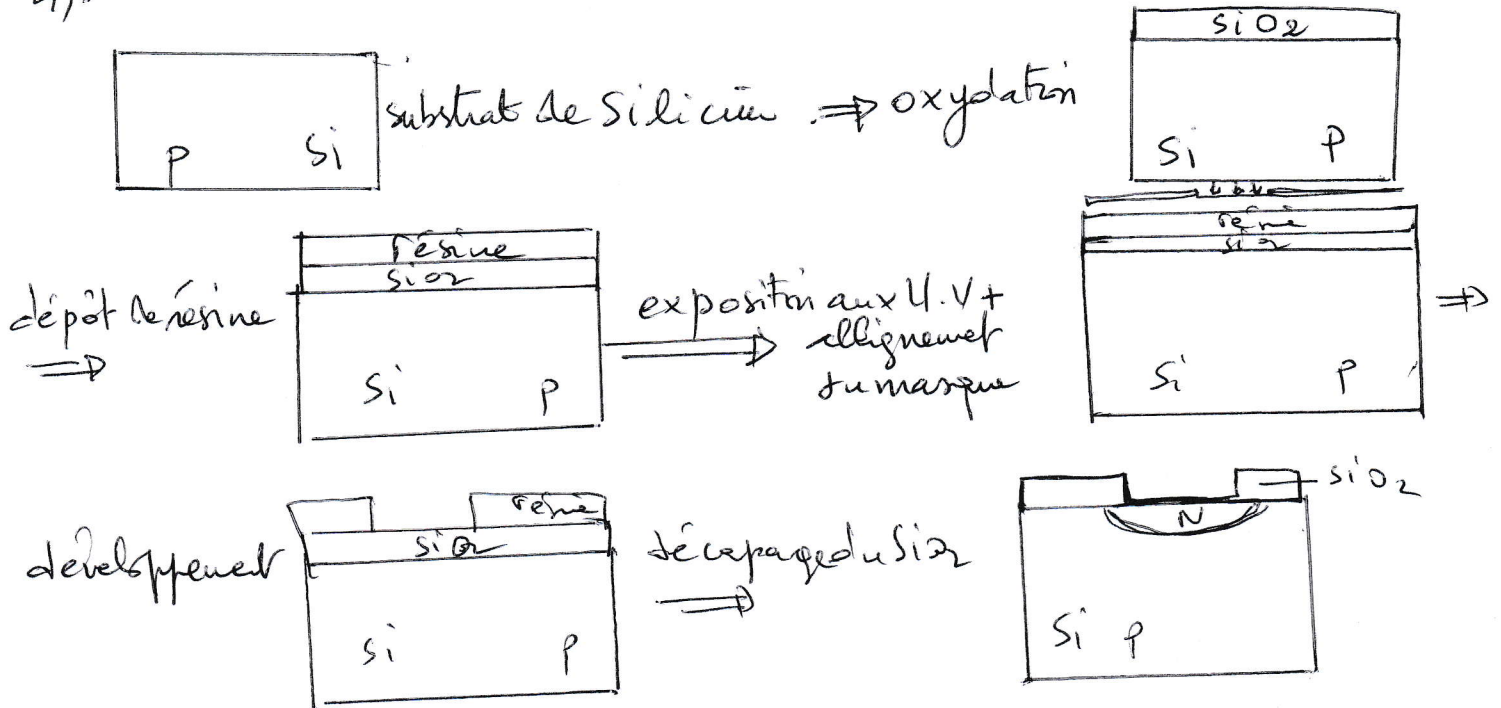 4)
SiO2
P Si
substrat de Silicium ⇒ oxydation
Si P
résine
SiO2
dépôt de résine
⇒
Si P
exposition aux U.V +
allignemet
du masque
résine
SiO2
⇒
Si P
développement
résine
SiO2
Si P
décapage du SiO2
⇒
SiO2
N
Si P